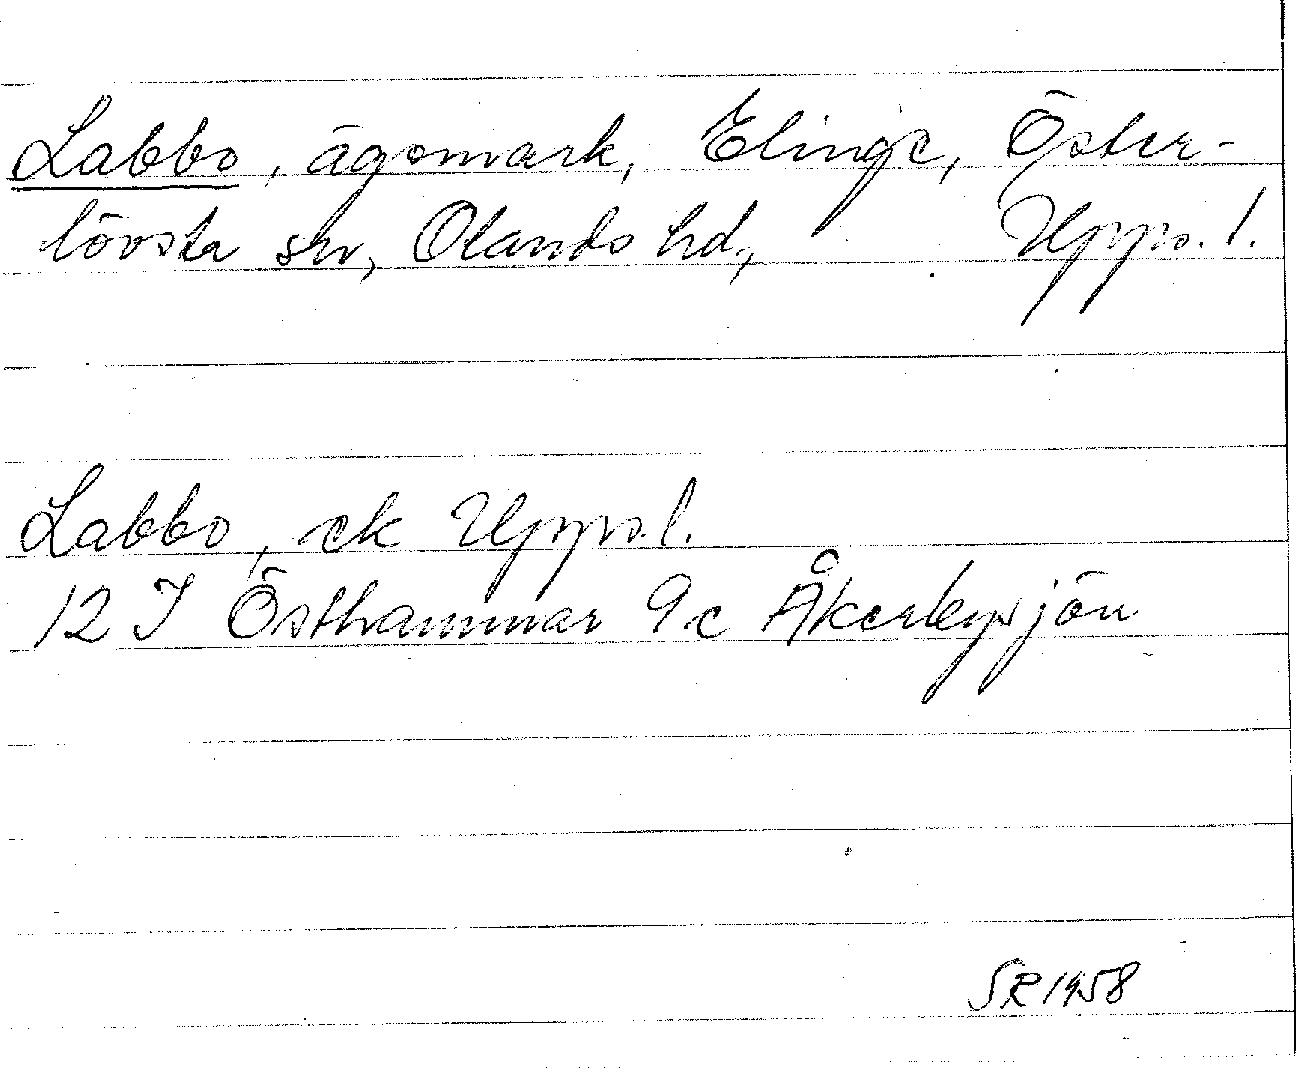 Labbo, ägomark, Elinge, Öster-
lövsta sn, Olands hd, Upps. l.
Labbo, ek Upps. l.
12 I Östhammar 9 c Åkerbysjön
SR 1958